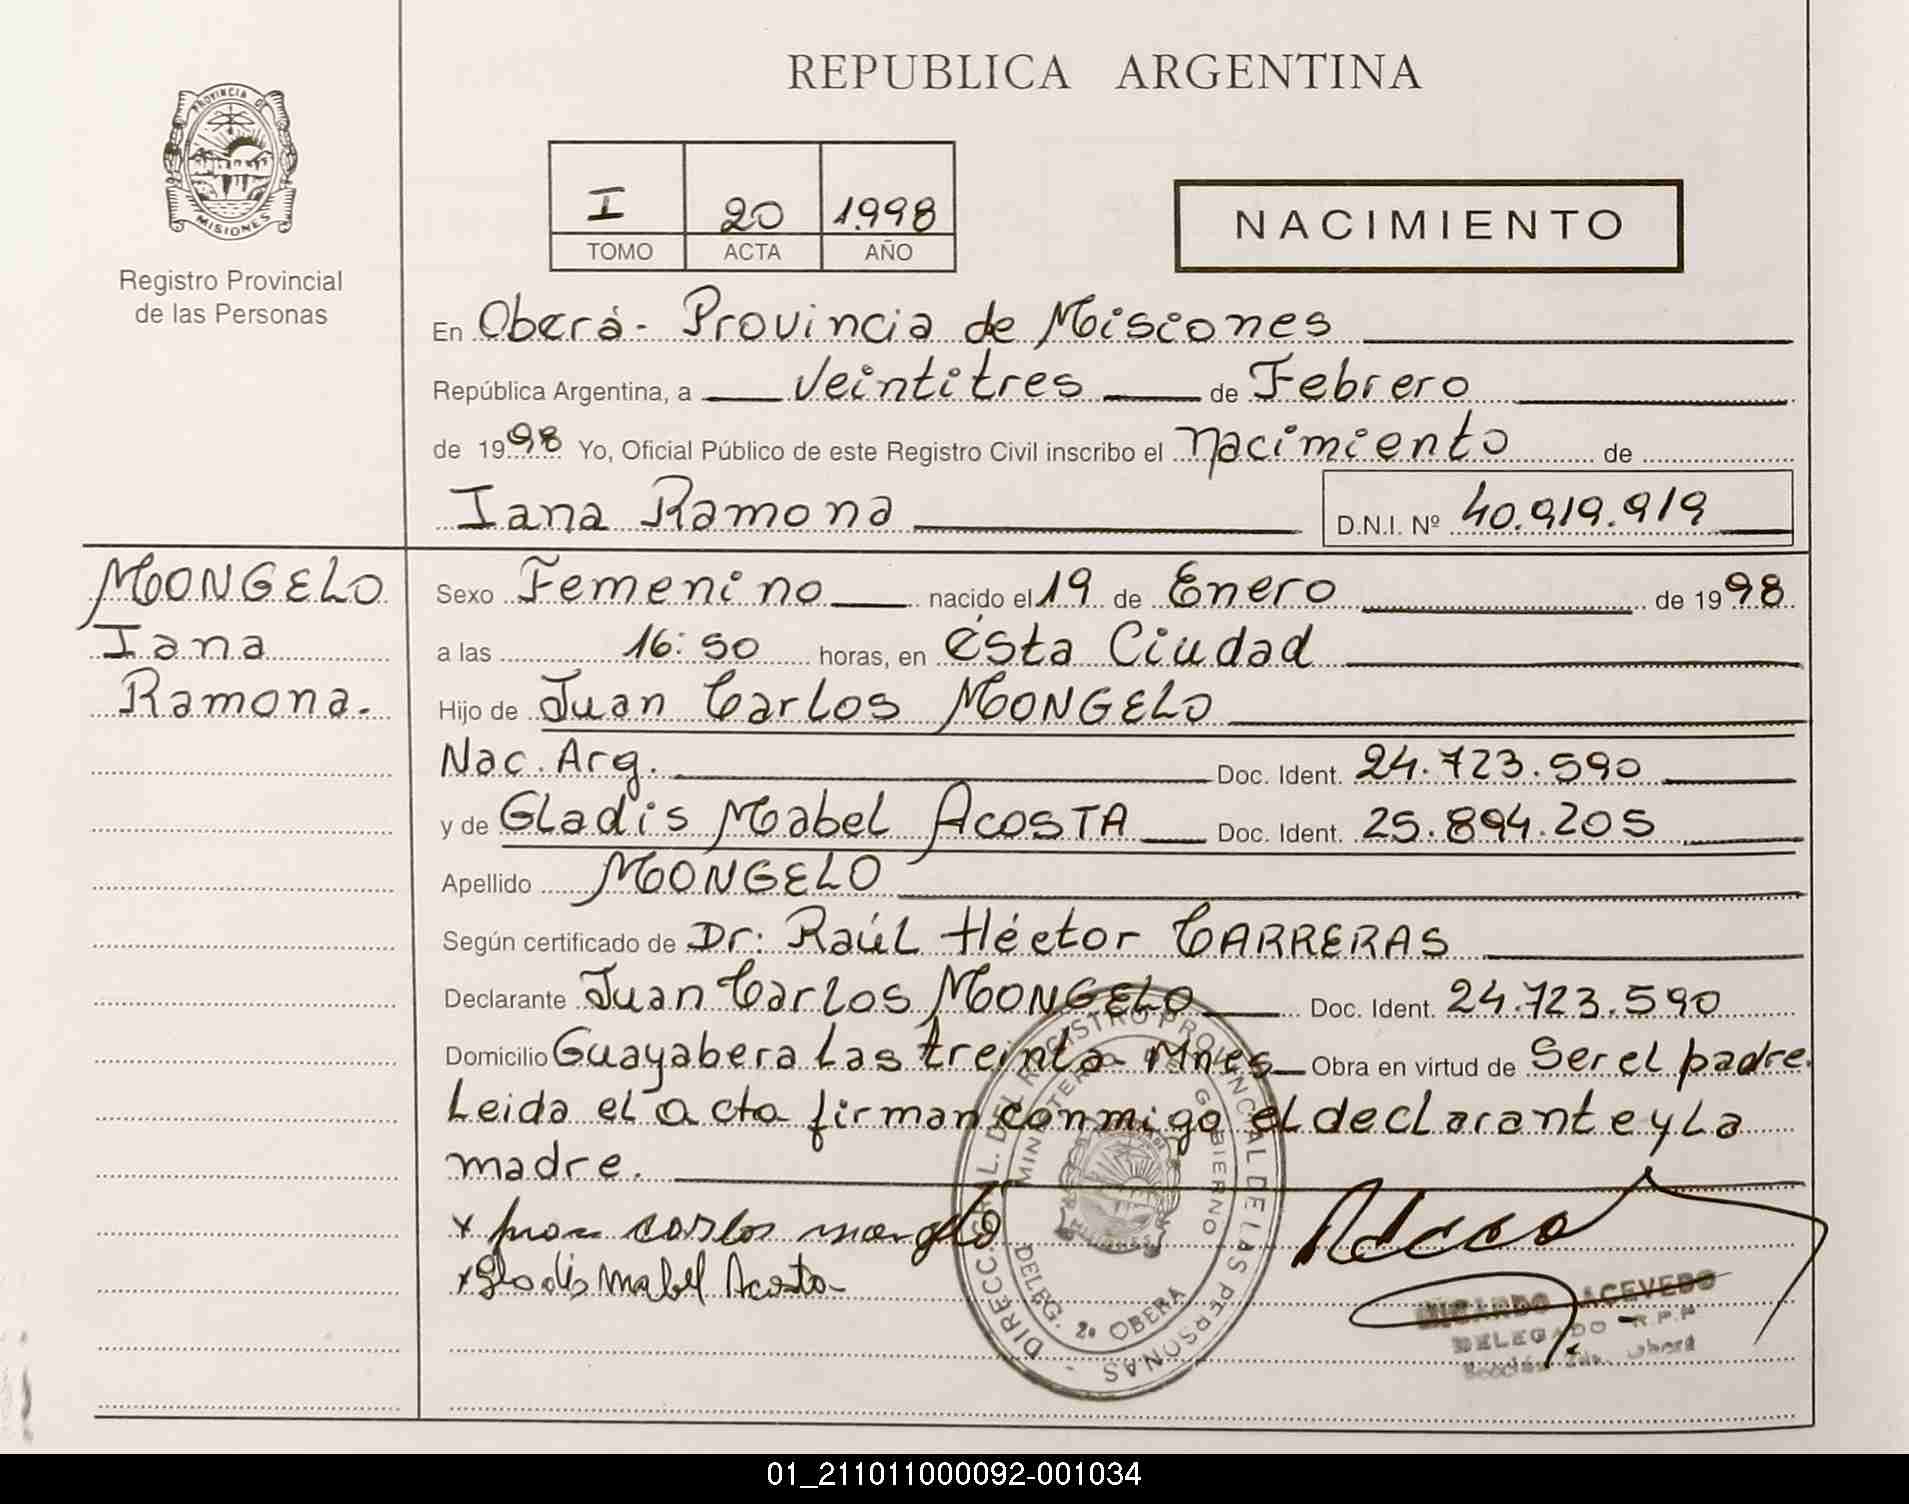 REPUBLICA ARGENTINA
PROVINCIA DE
MISIONES
Registro Provincial
de las Personas
I 20 1.998
TOMO ACTA AÑO
NACIMIENTO
En Oberá - Provincia de Misiones
República Argentina, a veintitres de Febrero
de 1998 Yo, Oficial Público de este Registro Civil inscribo el nacimiento de
Iana Ramona D.N.I. Nº 40.919.919
MONGELO
Iana
Ramona.
Sexo Femenino nacido el 19 de Enero de 1998
a las 16:50 horas, en ésta Ciudad
Hijo de Juan Carlos MONGELO
Nac. Arg. Doc. Ident. 24.723.590
y de Gladis Mabel ACOSTA Doc. Ident. 25.894.205
Apellido MONGELO
Según certificado de Dr. Raúl Héctor CARRERAS
Declarante Juan Carlos MONGELO Doc. Ident. 24.723.590
Domicilio Guayabera Las treinta - Mnes Obra en virtud de Ser el padre.
Leida el acta firman conmigo el declarante y La
madre.
x juan carlos mongelo
x Gladis Mabel Acosta
DIRECC. GRAL. DEL REGISTRO PROVINCIAL DE LAS PERSONAS -
MINISTERIO DE GOBIERNO
DELEG. 2ª OBERA
RICARDO ACEVEDO
DELEGADO R.P.P
Sección 2da. Oberá
01_211011000092-001034